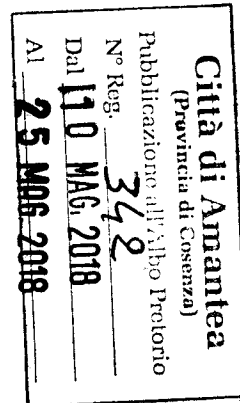 Città di Amantea
(Provincia di Cosenza)
Pubblicazione all'Albo Pretorio
N° Reg. 348
Dal 10 MAG. 2018
Al 25 MAG 2018